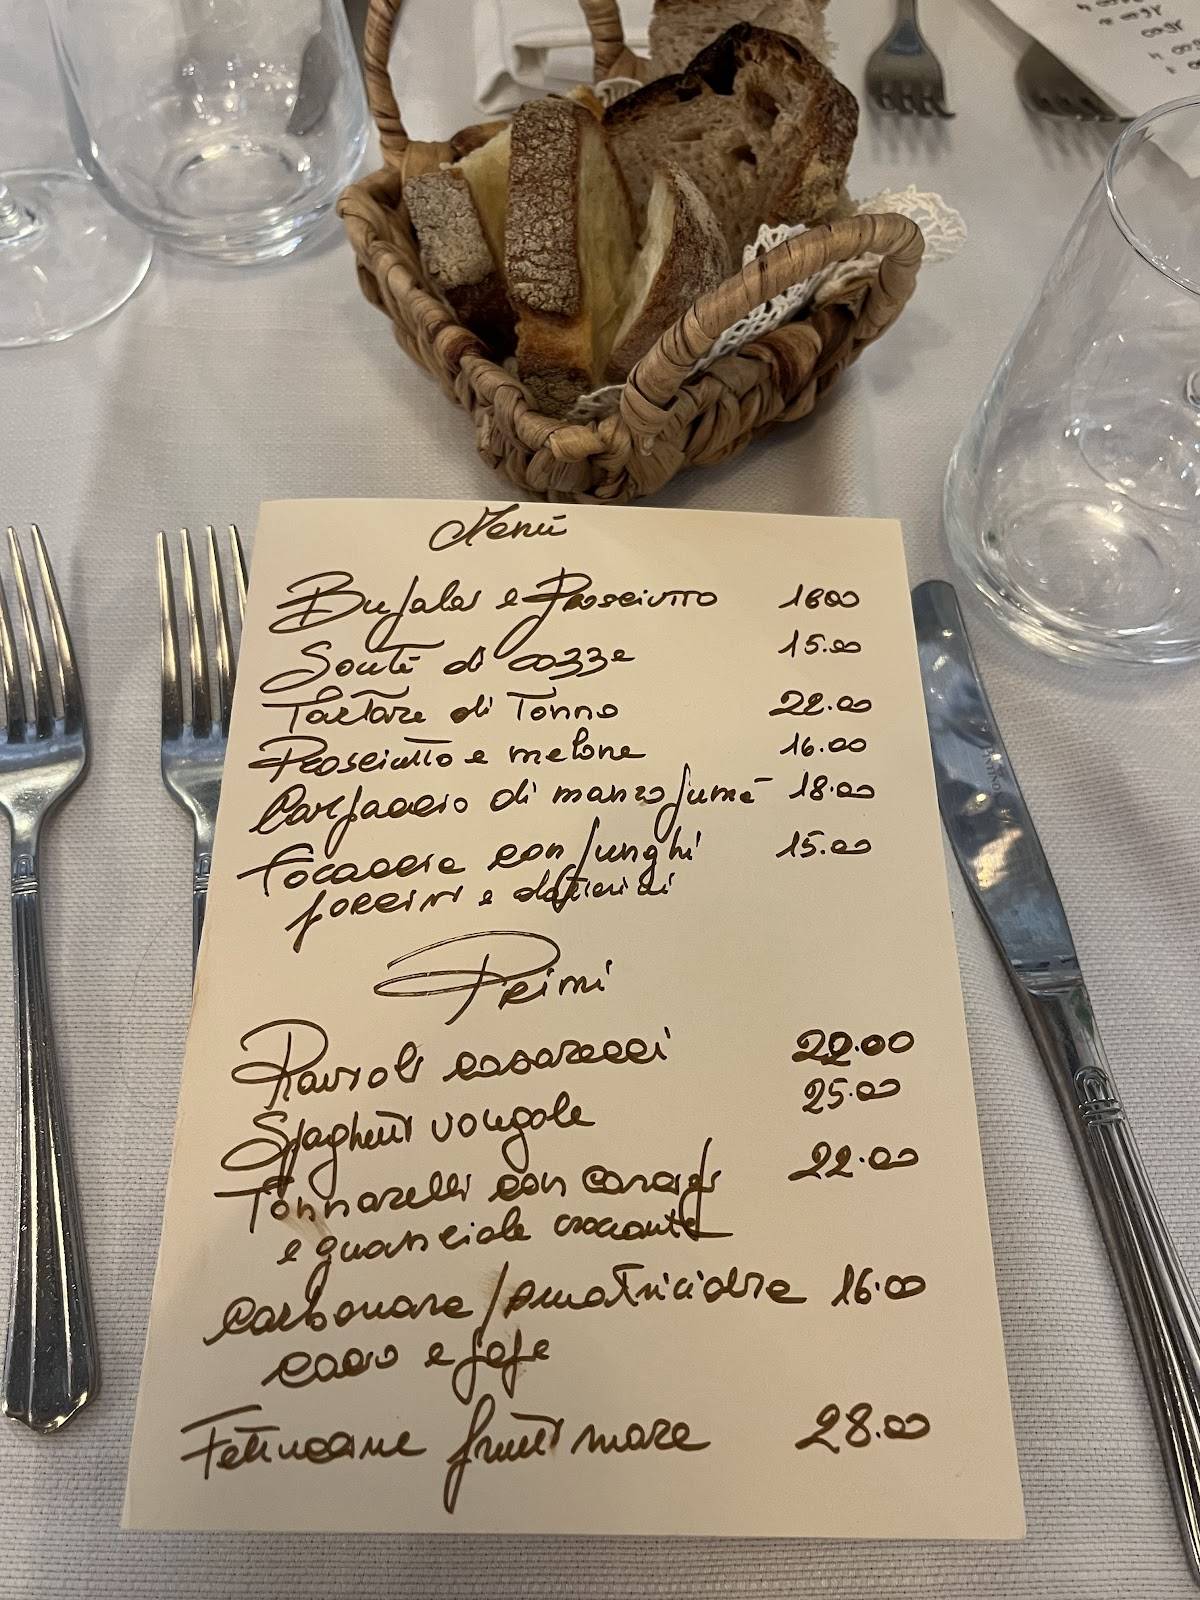 Menù
Bufala e Prosciutto 1600
Soutè di cozze 15.00
Tartare di Tonno 22.00
Prosciutto e melone 16.00
Carpaccio di manzo fumè 18.00
Focaccia con funghi 15.00
porcini e
Primi
Ravioli casarecci 22.00
Spaghetti vongole 25.00
Tonnarelli con carciofi 22.00
e guanciale croccante
Carbonara / amatriciana 16.00
cacio e pepe
Fettuccine frutti mare 28.00